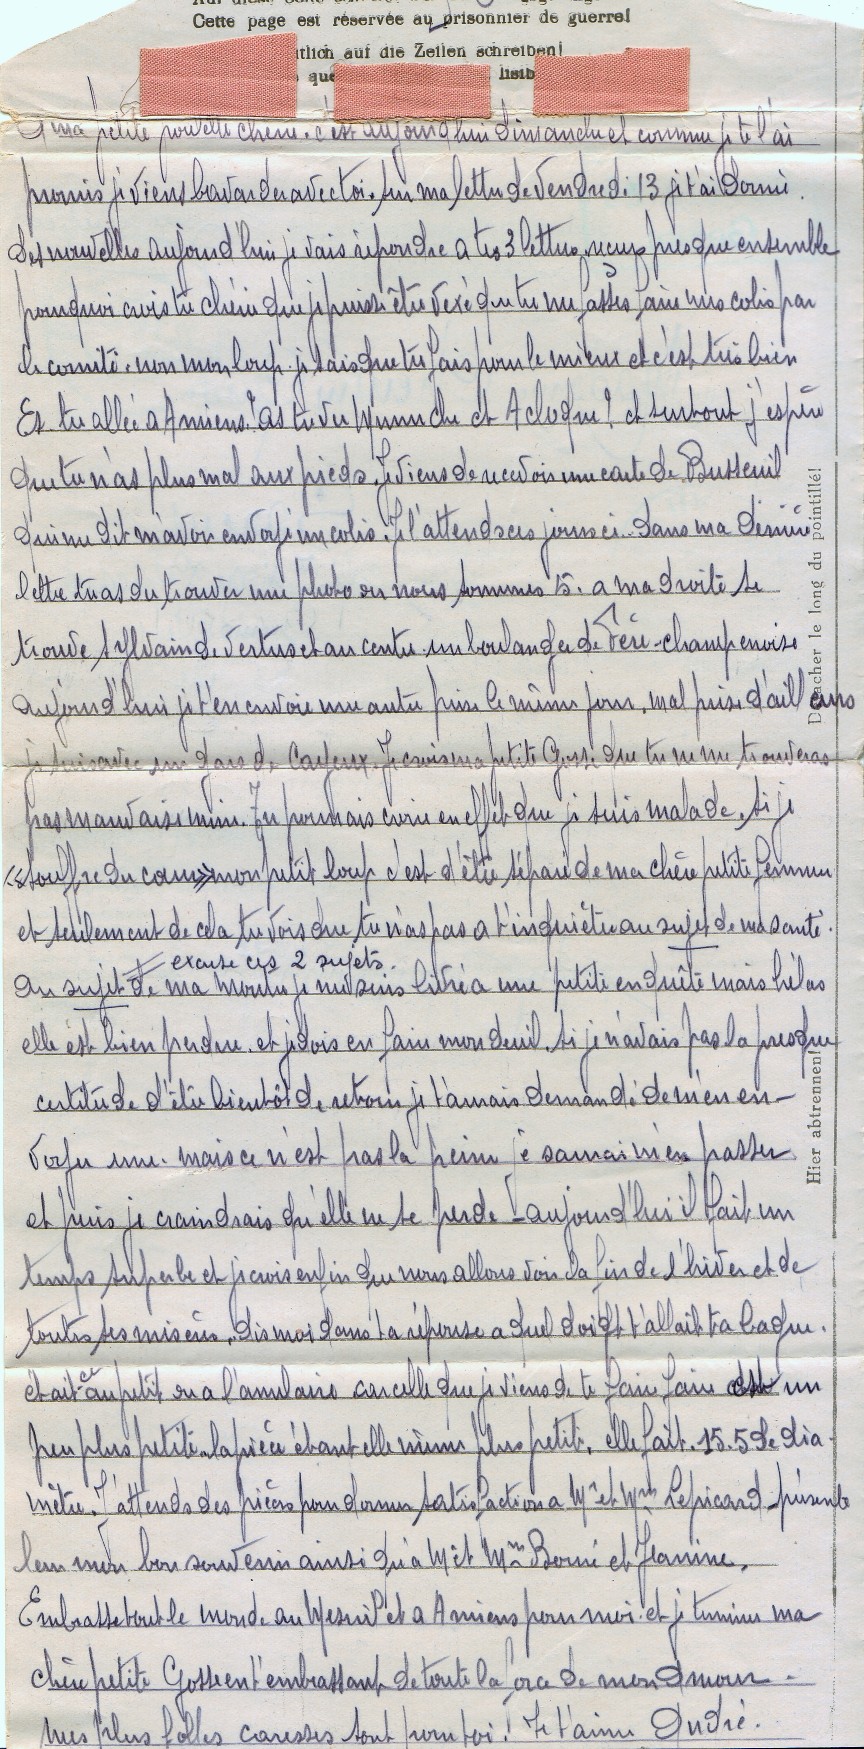 Cette page est réservée au prisonnier de guerre!
tlich auf die Zeilen schreiben!
que lisib
ma petite poulette chérie. c'est aujourd'hui dimanche et comme je te l'ai
promis je viens bavarder avec toi. sur ma lettre de vendredi 13 je t'ai donné
des nouvelles aujourd'hui je vais répondre a tes 3 lettres reçus presque ensemble
pourquoi crois tu chérie que je puisse être vexé que tu me fasses faire mes colis par
le comité. non mon loup. je sais que tu fais pour le mieux et c'est très bien
Es tu allée a Amiens? as tu vu et Acloque? et surtout j'espère
que tu n'as plus mal aux pieds. Je viens de recevoir une carte de Busseuil
qui me dit m'avoir envoyé un colis. Je l'attends ces jours ci. dans ma dernière
lettre tu as du trouver une photo ou nous sommes 5. a ma droite se
trouve Sylvain de Vertus et au centre un boulanger de Fère-champenoise
aujourd'hui je t'en envoie une autre prise le même jour, mal prise d'ailleurs
je suis avec un gars de Cayeux. Je crois ma petite Gosse que tu ne me trouveras
pas mauvaise mine. Tu pourrais croire en effet que je suis malade, si je
«souffre du cœur» mon petit loup c'est d'être séparé de ma chère petite femme
et seulement de cela tu vois que tu n'as pas a t'inquiéter au sujet de ma santé.
excuse ces 2 sujets.
au sujet de ma montre je me suis livré a une petite enquête mais hélas
elle est bien perdue. et je dois en faire mon deuil. si je n'avais pas la presque
certitude d'être bientôt de retour je t'aurais demandé de m'en en-
voyer une. mais ce n'est pas la peine je saurai m'en passer
et puis je craindrais qu'elle ne se perde! aujourd'hui il fait un
temps superbe et je crois enfin que nous allons voir la fin de l'hiver et de
toutes ses misères. dis moi dans ta réponse a quel doigt t'allait ta bague.
était ce au petit ou a l'annulaire car celle que je viens de te faire faire est un
peu plus petite. la pièce étant elle même plus petite. elle fait. 15.5 de dia-
mètre. J'attends des pièces pour donner satisfaction a Mr et Mme Lepicard présente
leur mon bon souvenir ainsi qu'a M et Mme Borné et Jeanine.
Embrasse tout le monde au Mesnil et a Amiens pour moi. et je termine ma
chère petite Gosse en t'embrassant de toute la force de mon Amour.
mes plus folles caresses sont pour toi! Je t'aime André.
Détacher le long du pointillé!
Hier abtrennen!